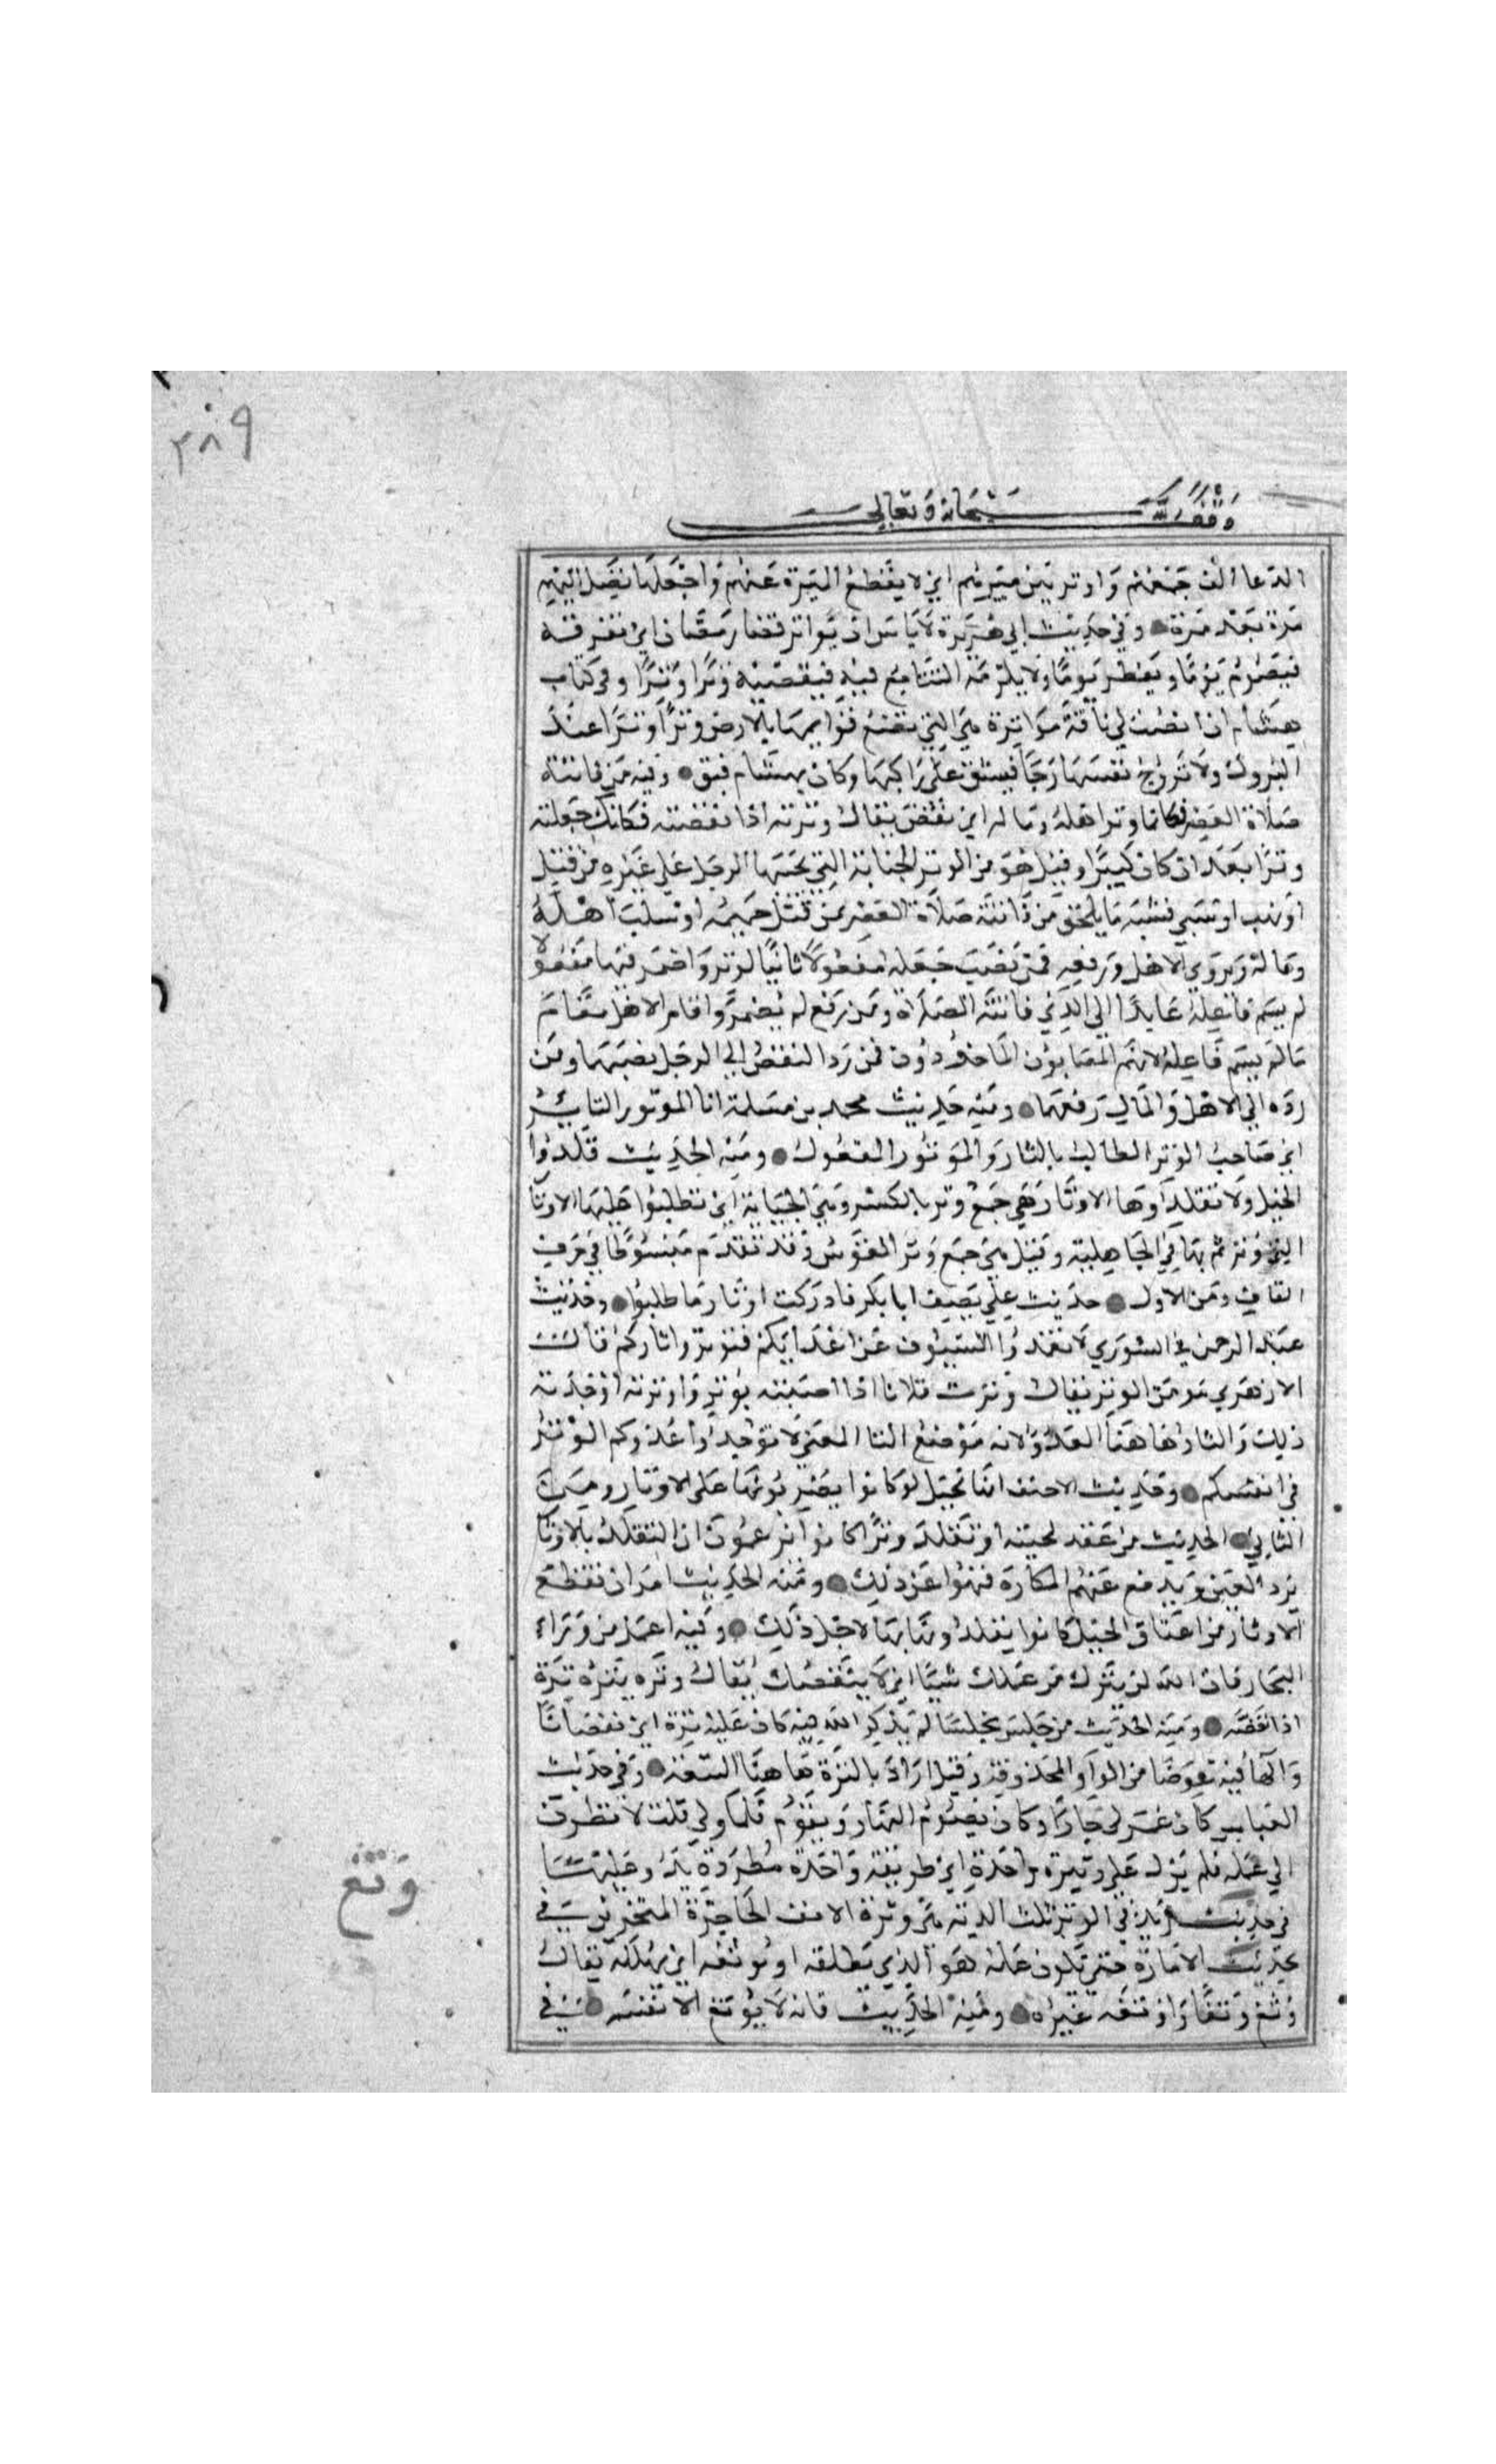 ٣٨٩
وقف لله سبحانه وتعالى
الدعا ألف جمعهم وأوتر بين ميرهم اي لا يقطع الميرة عنهم واجعلها تصل اليهم
مرة بعد مرة وفي حديث ابي هريرة لا باس ان يواتر قضا رمضان اي يفرقه
فيصوم يوما ويفطر يوما ولا يلزمه التتابع فيه فيقضيه وترا وترا وفي كتاب
هشام ان اصب لي ناقة مواترة هي التي تضع قوايمها بالارض وترا وترا عند
البروك ولا تزج نفسها زجا فيشق على راكبها وكان بهشام فتق وفيه من فاتته
صلاة العصر فكانما وتر اهله وماله اي نقص يقال وترته اذا نقصته فكانك جعلته
وترا بعد ان كان كثيرا وقيل هو من الوتر الجناية التي يجنيها الرجل على غيره من قتل
او نهب او سبي فشبه ما يلحق من فاتته صلاة العصر بمن قتل حميمه او سلب اهله
وماله ويروى الاهل ورفعه فمن نصب جعله مفعولا ثانيا لوتر واضمر فيها مفعولا
لم يسم فاعله عايدا الى الذي فاتته الصلاة ومن رفع لم يضمر واقام الاهل مقام
ما لم يسم فاعله لانهم المصابون الماخوذون فمن رد النقص الى الرجل نصبهما ومن
رده الى الاهل والمال رفعهما ومنه حديث محمد بن مسلمة انا الموتور الثاير
اي صاحب الوتر الطالب بالثار والموتور المفعول ومنه الحديث قلدوا
الخيل ولا تقلدوها الاوتار هي جمع وتر بالكسر وهي الجناية اي تطلبوا عليها الاوتا
التي وترتم بها في الجاهلية وقيل هي جمع وتر القوس وقد تقدم مبسوطا في حرف
القاف ومن الاول حديث علي يصف ابا بكر فادركت اوتار ما طلبوا وحديث
عبد الرحمن في الشورى لا تغمدوا السيوف عن اعدايكم فتوتروا ثاركم قال
الازهري هو من الوتر يقال وترت فلانا اذا اصبته بوتر واوترته اوجدته
ذلك والثار هاهنا العدو لانه موضع الثا المعنى لا توجدوا عدوكم الوتر
في انفسكم وحديث الاحنف انها تخيل لو كانوا يضربونها على الاوتار ومن
الثاني الحديث من عقد لحيته او تقلد وترا كانوا يزعمون ان التقلد بالاوتا
يرد العين ويدفع عنهم المكاره فنهوا عن ذلك ومنه الحديث امر ان تقطع
الاوتار من اعناق الخيل كانوا يقلدونها بها لاجل ذلك وفيه اعمل من وراء
البحار فان الله لن يترك من عملك شيا اي لا ينقصك يقال وتره يتره ترة
اذا نقصه ومنه الحديث من جلس مجلسا لم يذكر الله فيه كان عليه ترة اي نقصانا
والها فيه عوضا من الواو المحذوفة وقيل اراد بالترة هاهنا التبعة وفي حديث
العباس كان عمر لي جارا وكان يصوم النهار ويقوم فلما ولي قلت لانظرن
الى عمله فلم يزل على وتيرة واحدة اي طريقة واحدة مطردة يدوم عليها
في حديث زيد في الوترة ثلث الدية هي وترة الانف الحاجزة المنخرين في
حديث الامارة حتى يكون عمله هو الذي يطلقه او يوتغه اي يهلكه يقال
وتغ وتغا واوتغه غيره ومنه الحديث فانه لا يوتغ الا نفسه في
وتغ